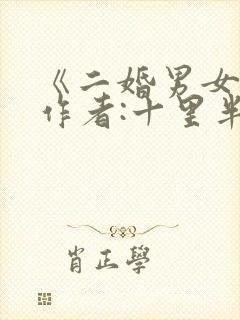 《二婚男女
作者:十里半
肖正學